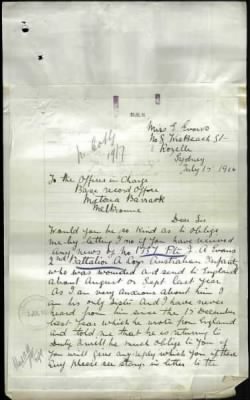 Miss E Evans
Rozelle
Sydney
July 17 1916
To the Officer in Charge
Base record Office
Victoria Barrack
Melbourne
Dear Sir
Would you be so kind as to oblige
me by letting I no if you have received
any news of no Pte J. A Evans
2nd Battalion A Coy Australian
who was wounded and send to England
about August or Sept last year
As I am very anxious about him I
am his only sister and I have never
heard from him since the 17 December
last year which he wrote from England
and told me that he is returning to
Duty Again he much oblige to you if
You will give any reply which you
please see stamp in letter to the